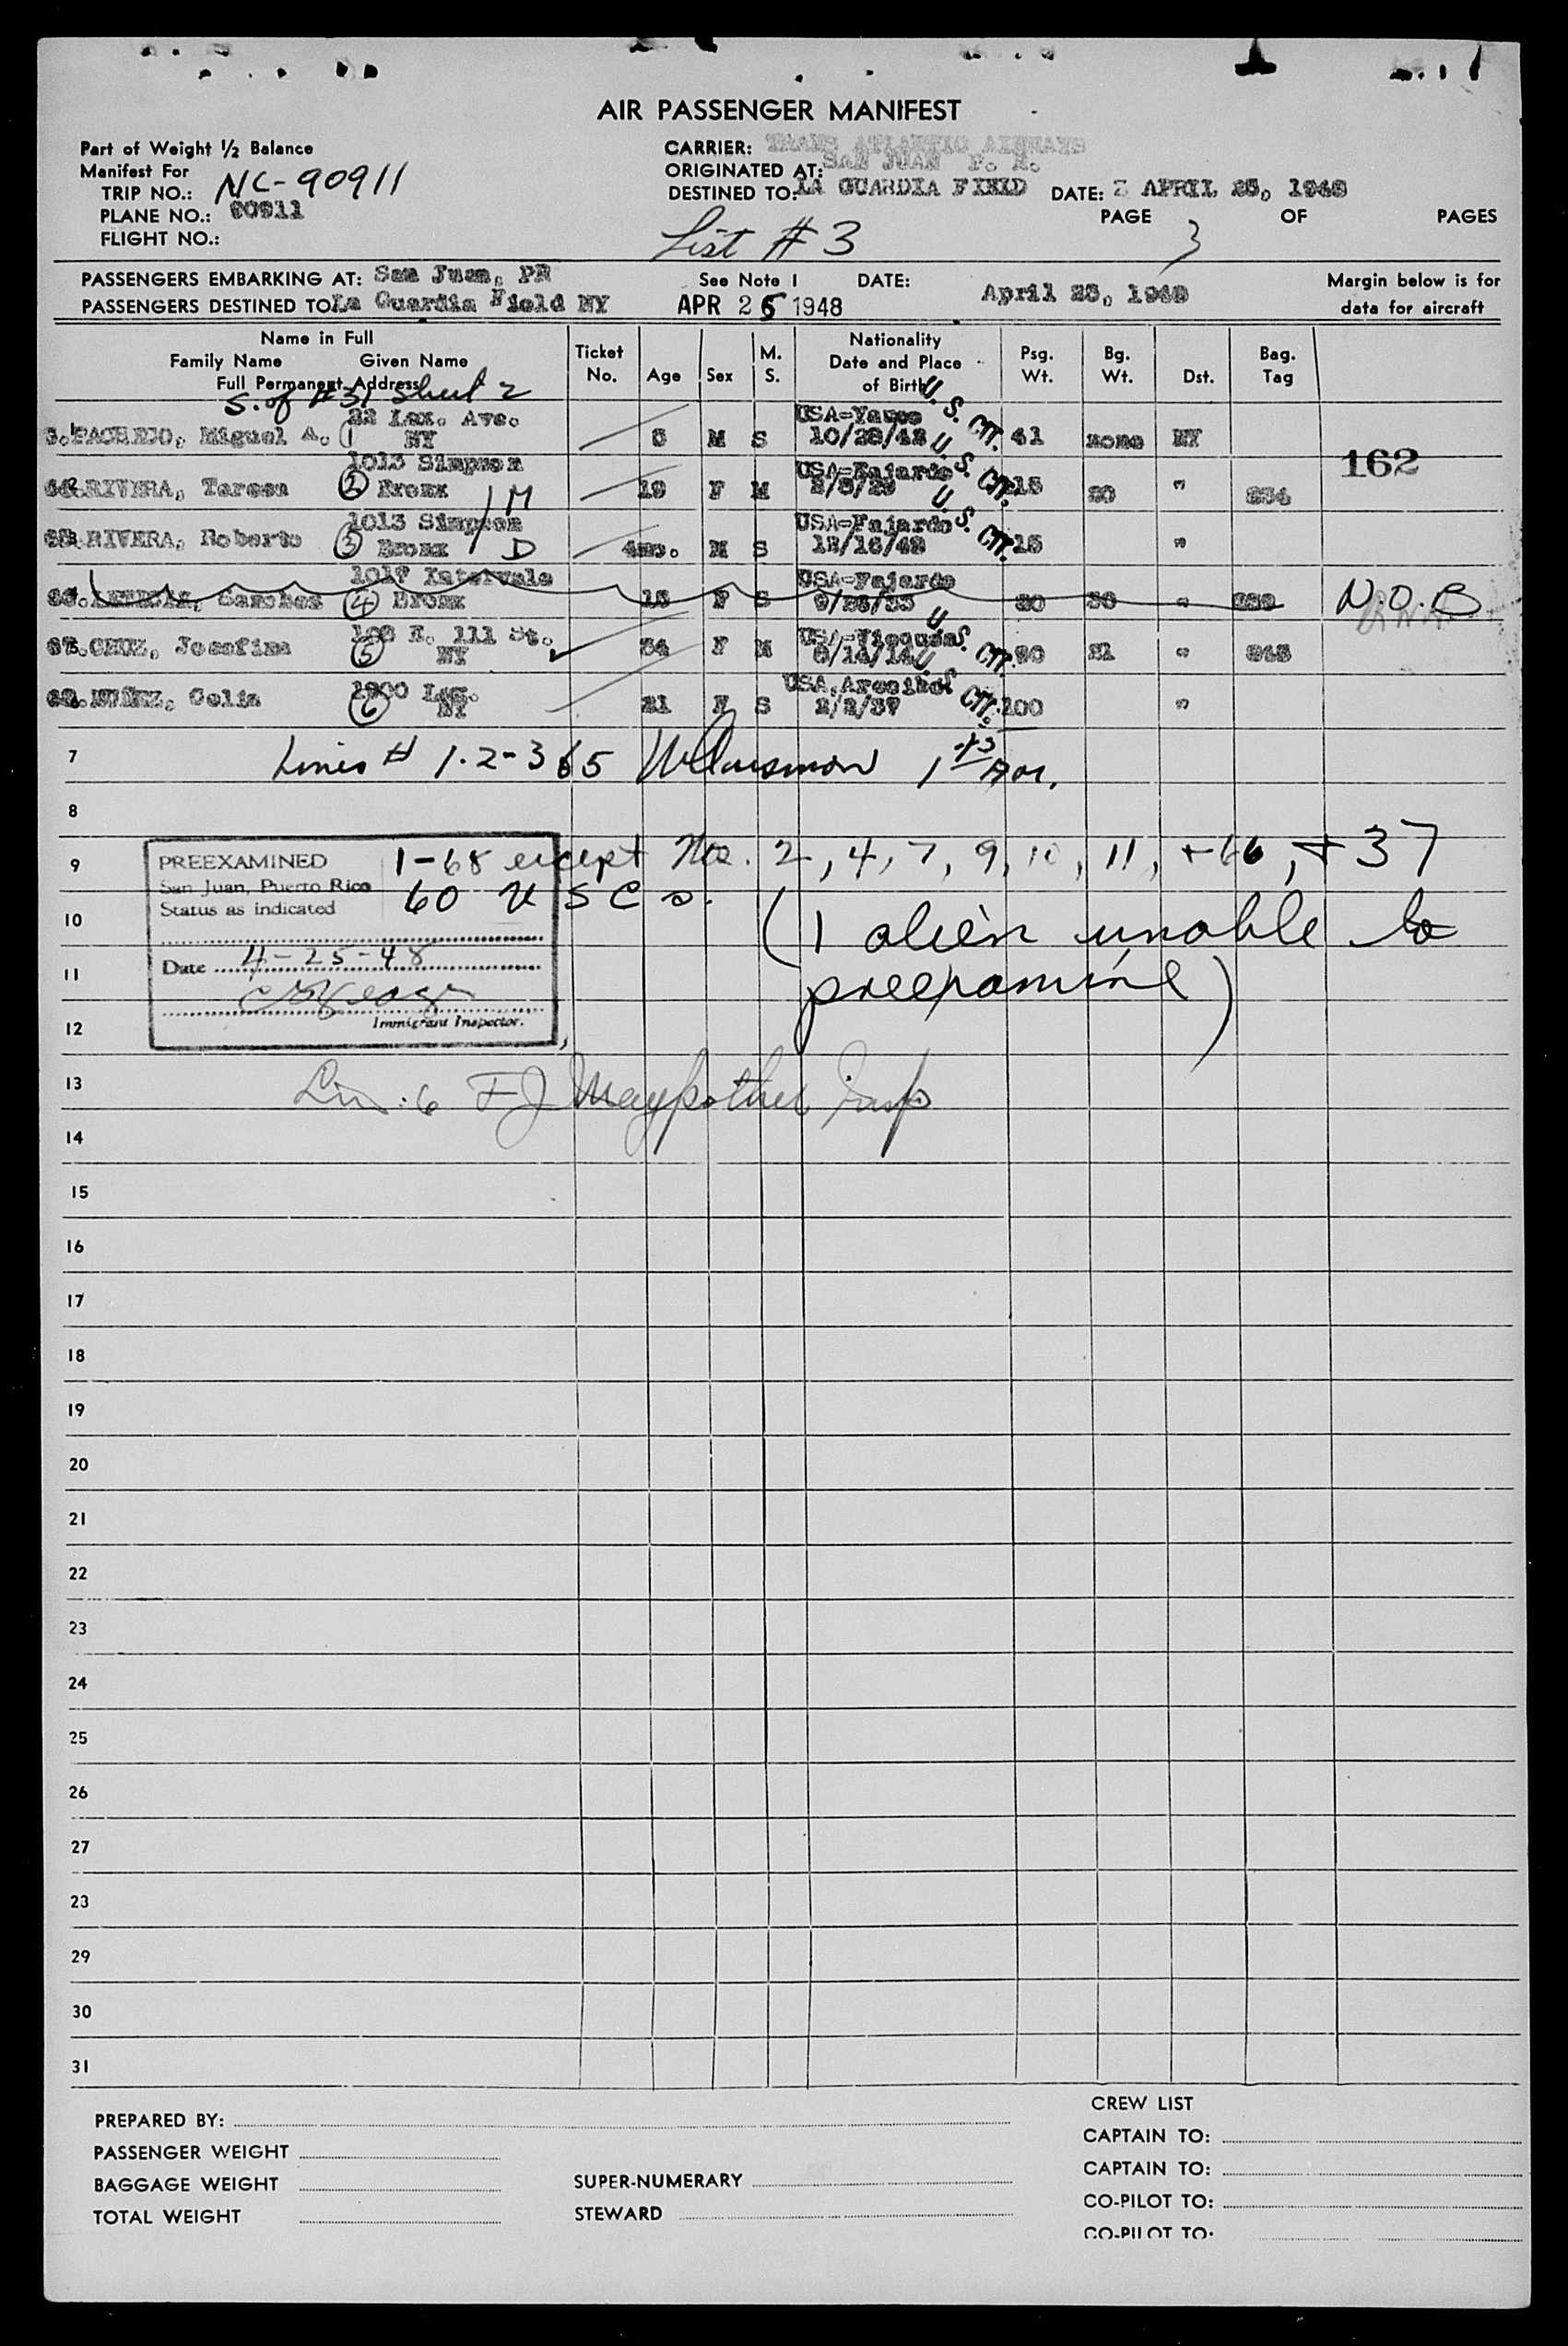 AIR PASSENGER MANIFEST
Part of Weight ½ Balance
Manifest For
TRIP NO.: NC-90911
PLANE NO.: 90911
FLIGHT NO.:
CARRIER: TRANS ATLANTIC AIRWAYS
ORIGINATED AT: SAN JUAN P. R.
DESTINED TO: LA GUARDIA FIELD DATE: APRIL 25, 1948
PAGE 3 OF PAGES
List # 3
PASSENGERS EMBARKING AT: San Juan, PR See Note 1 DATE: April 25, 1948 Margin below is for
PASSENGERS DESTINED TO: La Guardia Field NY APR 26 1948 data for aircraft
Name in Full
Family Name Given Name
Full Permanent Address
Ticket No. Age Sex M. S. Nationality Date and Place of Birth Psg. Wt. Bg. Wt. Dst. Bag. Tag
S. of #31 Sheet 2
22 Lex. Ave. USA-Yauco U. S. CIT.
PACHECO, Miguel A. 1 NY M S 41 none NY
162
1013 Simpson USA-Fajardo U. S. CIT.
RIVERA, Teresa 2 Bronx M 19 F M "
1013 Simpson USA-Fajardo U. S. CIT.
RIVERA, Roberto 3 Bronx D 4mo. M S 15 "
Intervale USA-Fajardo
Sanchez 4 Bronx 15 F S " N.O.B
111 St. U. S. CIT.
CRUZ, Josefina 5 NY 34 F M "
USA, Arecibo U. S. CIT.
Celia 6 NY 21 F S 100 "
7 Lines # 1-2-3 & 5
8
9 1-68 except Nos. 2, 4, 7, 9, 10, 11, + 66, + 37
PREEXAMINED
San Juan, Puerto Rico
Status as indicated
60 U S C s.
10 (1 alien unable to
11 preexamine)
Date 4-25-48
Immigrant Inspector.
12
13 Line 6 F J Maypother Insp
14
15
16
17
18
19
20
21
22
23
24
25
26
27
23
29
30
31
PREPARED BY:
PASSENGER WEIGHT
BAGGAGE WEIGHT
TOTAL WEIGHT
SUPER-NUMERARY
STEWARD
CREW LIST
CAPTAIN TO:
CAPTAIN TO:
CO-PILOT TO:
CO-PILOT TO: